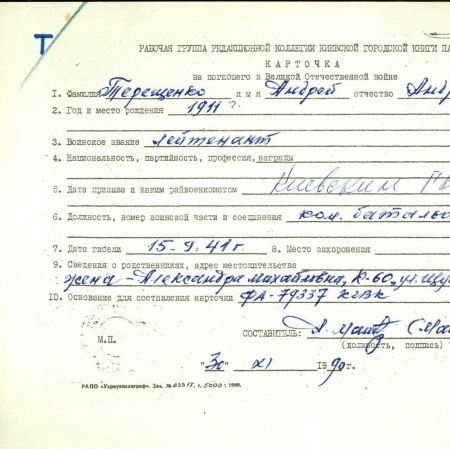 Т
РАБОЧАЯ ГРУППА РЕДАКЦИОННОЙ КОЛЛЕГИИ КИЕВСКОЙ ГОРОДСКОЙ КНИГИ ПА
КАРТОЧКА
на погибшего в Великой Отечественной войне
1. Фамилия Терещенко имя Андрей отчество Андр
2. Год и место рождения 1911 г.
3. Воинское звание лейтенант
4. Национальность, партийность, профессия, награды
5. Дата призыва и каким райвоенкоматом Киевским
6. Должность, номер воинской части и соединения ком. батальо
7. Дата гибели 15-9.41г. 8. Место захоронения
9. Сведения о родственниках, адрес местожительства
жена - Александра Михайловна, К-60, ул. Щу
10. Основание для составления карточки ФА-79337 КГВК
СОСТАВИТЕЛЬ:
М.П. (должность, подпись)
"30" XI 1990г.
РАПО «Укрвузполиграф». Зак. 5000; 1990.